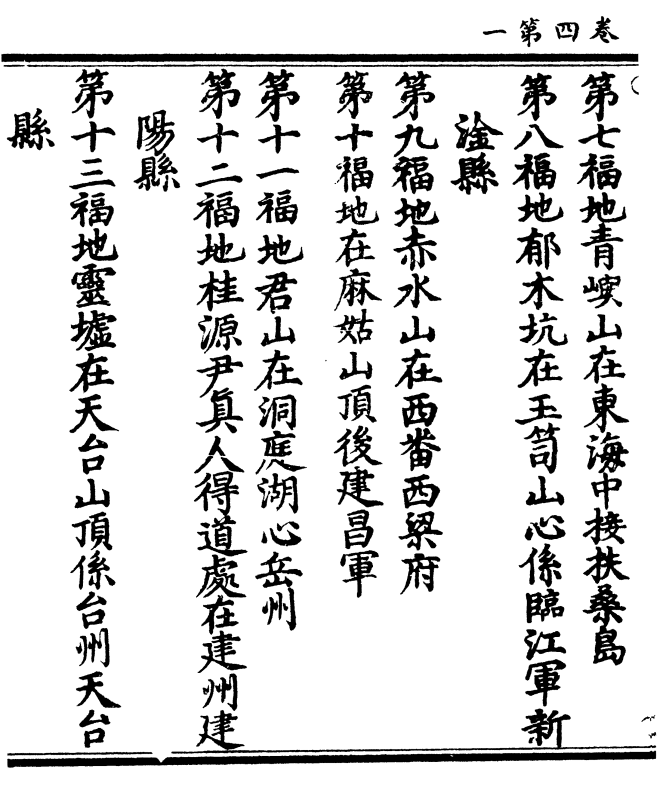 卷四第一
第七福地青㠗山在東海中接扶桑島
第八福地郁木坑在玉笥山心係臨江軍新
淦縣
第九福地赤水山在西畨西梁府
第十福地在麻姑山頂後建昌軍
第十一福地君山在洞庭湖心岳州
第十二福地桂源尹真人得道處在建州建
陽縣
第十三福地靈墟在天台山頂係台州天台
縣